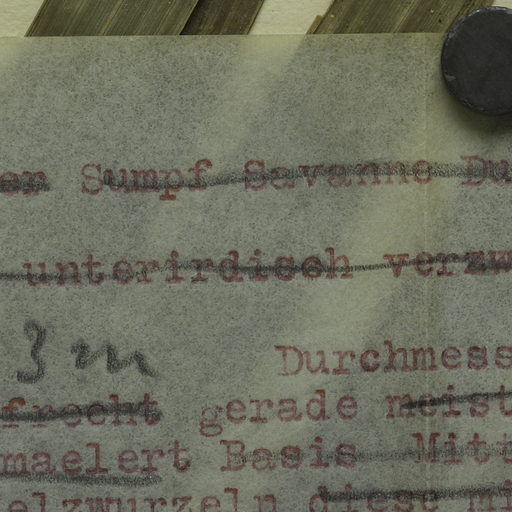 er Sumpf Savanne Du
unterirdisch verzw
3 m Durchmess
frecht gerade meist
maelert Basis Mitt
elzwurzeln diest mi